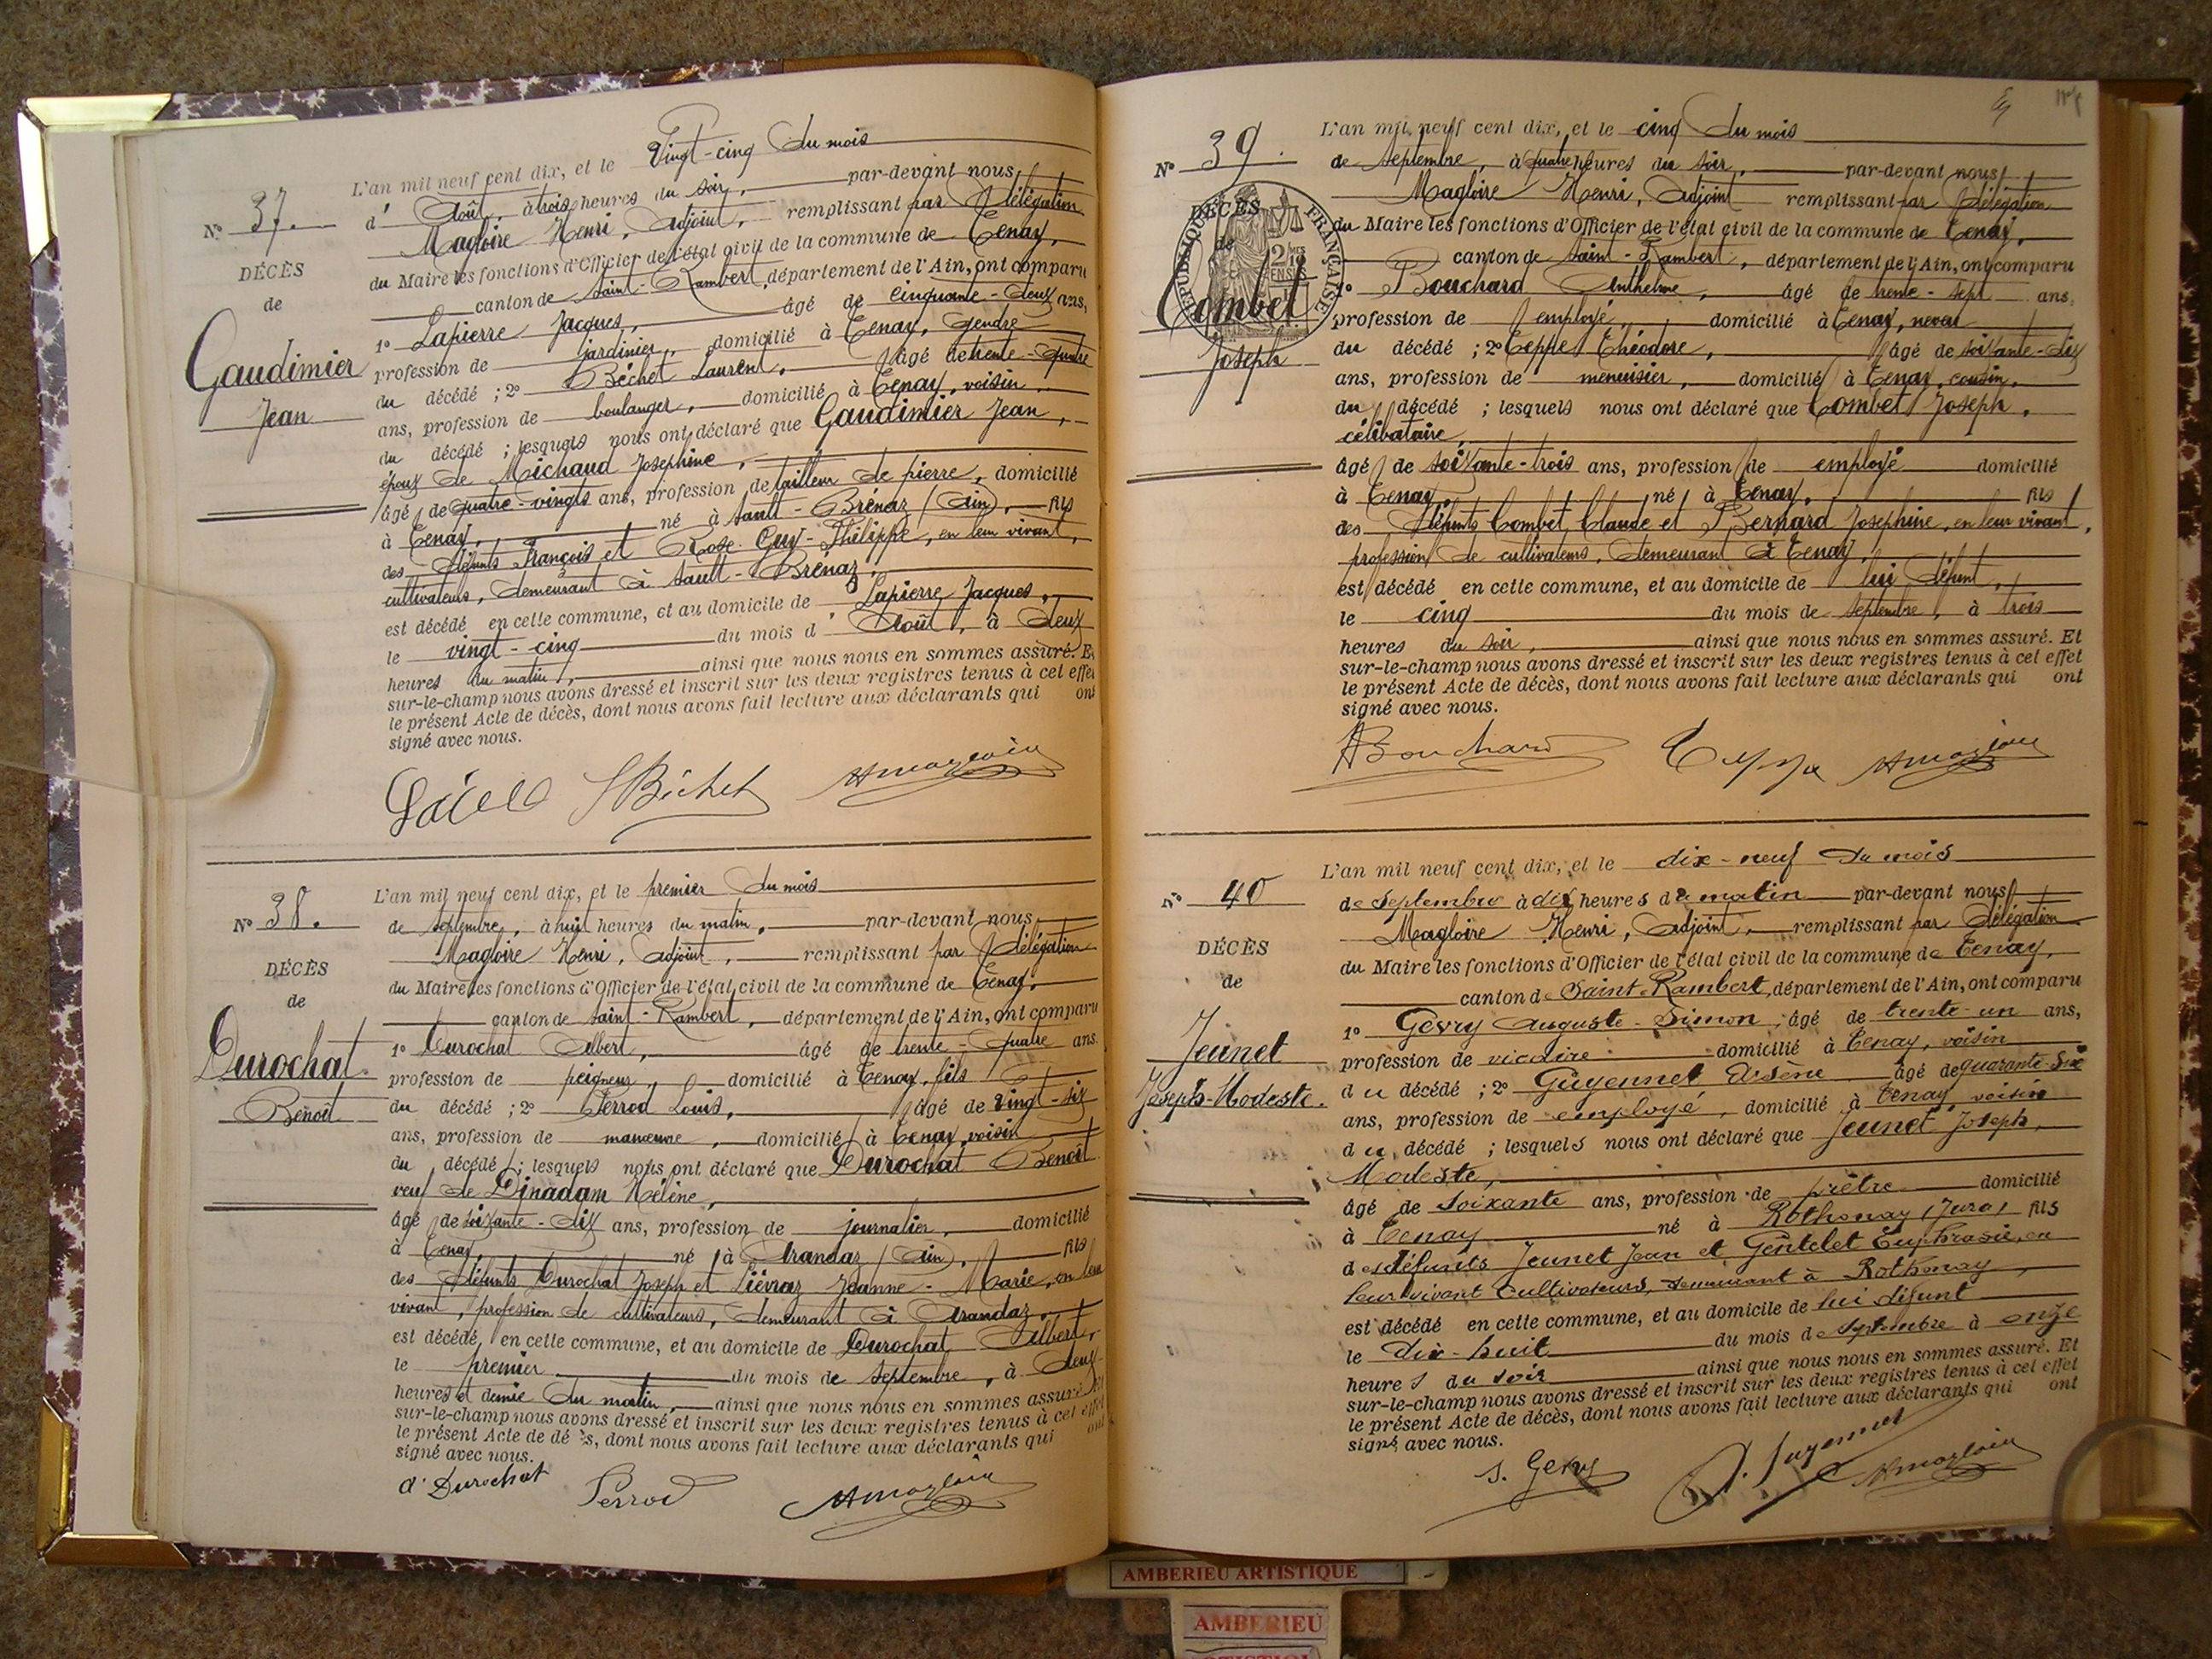 N° 37.
DÉCÈS
de
Gaudimier
Jean
L'an mil neuf cent dix, et le Vingt-cinq du mois
d' Août, à trois heures du soir, par-devant nous
Magloire Henri, adjoint, remplissant par délégation
du Maire les fonctions d'Officier de l'état civil de la commune de Tenay,
canton de Saint-Rambert, département de l'Ain, ont comparu
1° Lapierre Jacques, âgé de cinquante-deux ans,
profession de jardinier, domicilié à Tenay, gendre
du décédé ; 2° Béchet Laurent, âgé de trente-quatre
ans, profession de boulanger, domicilié à Tenay, voisin,
du décédé ; lesquels nous ont déclaré que Gaudimier Jean,
époux de Michaud Joséphine,
âgé de quatre-vingts ans, profession de tailleur de pierre, domicilié
à Tenay, né à Sault-Brénaz (Ain), fils
des défunts François et Rose Guy-Philippe, en leur vivant,
cultivateurs, demeurant à Sault-Brénaz,
est décédé en cette commune, et au domicile de Lapierre Jacques,
le vingt-cinq du mois d' Août, à deux
heures du matin, ainsi que nous nous en sommes assuré. Et
sur-le-champ nous avons dressé et inscrit sur les deux registres tenus à cet effet
le présent Acte de décès, dont nous avons fait lecture aux déclarants qui ont
signé avec nous.
LBéchet HMagloire
N° 38.
DÉCÈS
de
Durochat
Benoît
L'an mil neuf cent dix, et le premier du mois
de septembre, à huit heures du matin, par-devant nous
Magloire Henri, adjoint, remplissant par délégation
du Maire les fonctions d'Officier de l'état civil de la commune de Tenay,
canton de Saint-Rambert, département de l'Ain, ont comparu
1° Durochat Albert, âgé de trente-quatre ans.
profession de peigneur, domicilié à Tenay, fils
du décédé ; 2° Perrod Louis, âgé de vingt-six
ans, profession de manœuvre, domicilié à Tenay, voisin
du décédé ; lesquels nous ont déclaré que Durochat Benoit
veuf de Dinadam Hélène,
âgé de soixante-dix ans, profession de journalier, domicilié
à Tenay, né à Arandaz (Ain), fils
des défunts Durochat Joseph et Liénaz Jeanne-Marie, en leur
vivant, profession de cultivateurs, demeurant à Arandaz,
est décédé, en cette commune, et au domicile de Durochat Albert,
le premier du mois de septembre, à deux
heures et demie du matin, ainsi que nous nous en sommes assuré. Et
sur-le-champ nous avons dressé et inscrit sur les deux registres tenus à cet effet
le présent Acte de décès, dont nous avons fait lecture aux déclarants qui ont
signé avec nous.
A. Durochat Perrod HMagloire
N° 39.
DÉCÈS
de
RÉPUBLIQUE FRANÇAISE
Combet
Joseph
L'an mil neuf cent dix, et le cinq du mois
de septembre, à quatre heures du soir, par-devant nous
Magloire Henri, adjoint remplissant par délégation
du Maire les fonctions d'Officier de l'état civil de la commune de Tenay,
canton de Saint-Rambert, département de l'Ain, ont comparu
1° Bouchard Anthelme, âgé de trente-sept ans,
profession de employé, domicilié à Tenay, neveu
du décédé ; 2° Teppe Théodore, âgé de soixante-dix
ans, profession de menuisier, domicilié à Tenay, cousin,
du décédé ; lesquels nous ont déclaré que Combet Joseph,
célibataire,
âgé de soixante-trois ans, profession de employé domicilié
à Tenay, né à Tenay, fils
des défunts Combet Claude et Bernard Joséphine, en leur vivant,
profession de cultivateurs, demeurant à Tenay,
est décédé en cette commune, et au domicile de lui défunt,
le cinq du mois de septembre, à trois
heures du soir, ainsi que nous nous en sommes assuré. Et
sur-le-champ nous avons dressé et inscrit sur les deux registres tenus à cet effet
le présent Acte de décès, dont nous avons fait lecture aux déclarants qui ont
signé avec nous.
ABouchard Teppe HMagloire
N° 40
DÉCÈS
de
Jeunet
Joseph-Modeste.
L'an mil neuf cent dix, et le dix-neuf du mois
de septembre à dix heures du matin par-devant nous
Magloire Henri, adjoint, remplissant par délégation
du Maire les fonctions d'Officier de l'état civil de la commune de Tenay,
canton de Saint-Rambert, département de l'Ain, ont comparu
1° Gevry Auguste-Simon, âgé de trente-un ans,
profession de vicaire domicilié à Tenay, voisin
du décédé ; 2° Guyennet Arsène âgé de quarante-six
ans, profession de employé, domicilié à Tenay voisin
du décédé ; lesquels nous ont déclaré que Jeunet Joseph,
Modeste,
âgé de soixante ans, profession de prêtre domicilié
à Tenay né à Rothonay (Jura) fils
des défunts Jeunet Jean et Gentelet Euphrasie, en
leur vivant cultivateurs, demeurant à Rothonay,
est décédé en cette commune, et au domicile de lui défunt
le dix-huit du mois de septembre à onze
heures du soir ainsi que nous nous en sommes assuré. Et
sur-le-champ nous avons dressé et inscrit sur les deux registres tenus à cet effet
le présent Acte de décès, dont nous avons fait lecture aux déclarants qui ont
signé avec nous.
S. Gevry A. Guyennet HMagloire
AMBERIEU ARTISTIQUE
AMBERIEU